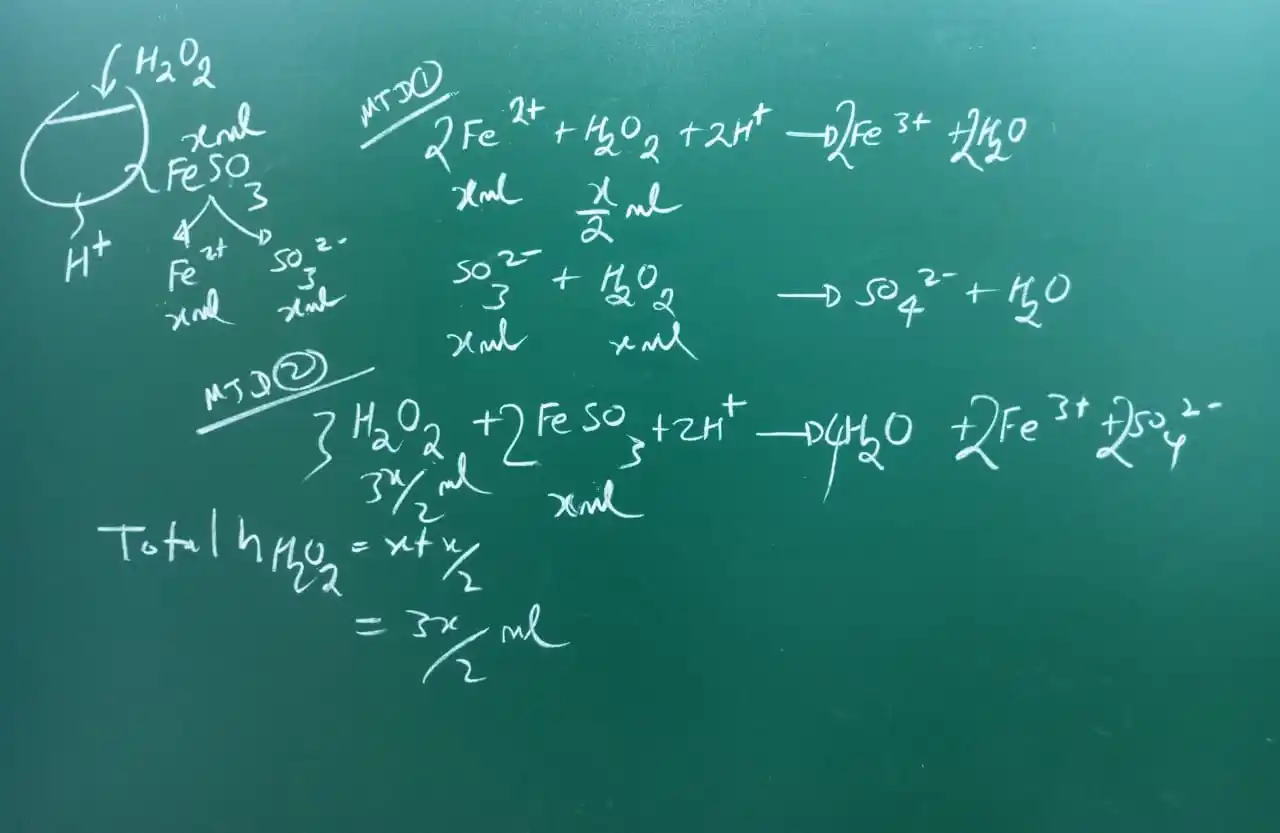 H₂O₂
x ml
FeSO₃
H⁺
Fe²⁺ SO₃²⁻
x ml x ml
MTD ①
2Fe²⁺ + H₂O₂ + 2H⁺ → 2Fe³⁺ + 2H₂O
x ml x/2 ml
SO₃²⁻ + H₂O₂ → SO₄²⁻ + H₂O
x ml x ml
MTD ②
3H₂O₂ + 2FeSO₃ + 2H⁺ → 4H₂O + 2Fe³⁺ + 2SO₄²⁻
3x/2 ml x ml
Total n H₂O₂ = x + x/2
= 3x/2 ml